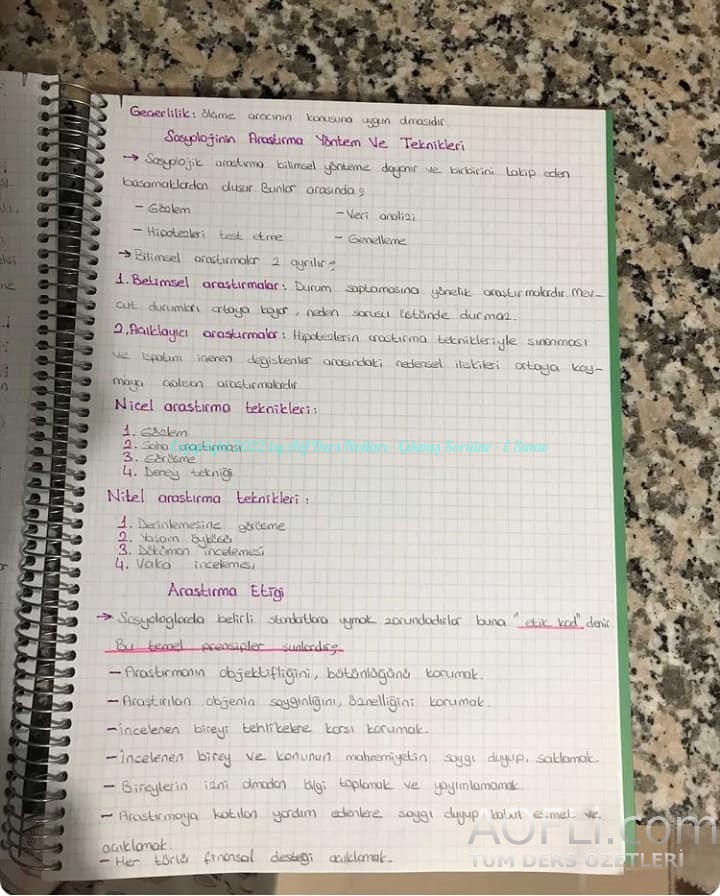 Geçerlilik: ölçme aracının konusuna uygun olmasıdır.
Sosyolojinin Araştırma Yöntem Ve Teknikleri
→ Sosyolojik araştırma bilimsel yönteme dayanır ve birbirini takip eden
basamaklardan oluşur. Bunlar arasında;
- Gözlem - Veri analizi
- Hipotezleri test etme - Genelleme
→ Bilimsel araştırmalar 2 ayrılır;
1. Betimsel araştırmalar: Durum saptamasına yönelik araştırmalardır. Mev-
cut durumları ortaya koyar, neden sorusu üstünde durmaz.
2. Açıklayıcı araştırmalar: Hipotezlerin araştırma teknikleriyle sınanması
ve ispatını içeren değişkenler arasındaki nedensel ilişkileri ortaya koy-
maya çalışan araştırmalardır
Nicel araştırma teknikleri:
1. Gözlem
2. Saha araştırması
3. Görüşme
4. Deney tekniği
Nitel araştırma teknikleri:
1. Derinlemesine görüşme
2. Yaşam öyküsü
3. Döküman incelemesi
4. Vaka incelemesi
Araştırma Etiği
→ Sosyologlarda belirli standartlara uymak zorundadırlar buna "etik kod" denir
Bu temel prensipler şunlardır;
- Araştırmanın objektifliğini, bütünlüğünü korumak.
- Araştırılan objenin saygınlığını, öznelliğini korumak.
- İncelenen bireyi tehlikelere karşı korumak.
- İncelenen birey ve konunun mahremiyetin saygı duyup, saklamak.
- Bireylerin izni olmadan bilgi toplamak ve yayımlamamak.
- Araştırmaya katılan yardım edenlere saygı duyup kabul etmek ve
açıklamak.
- Her türlü finansal desteği açıklamak.
AOFLi.com
TÜM DERS ÖZETLERİ